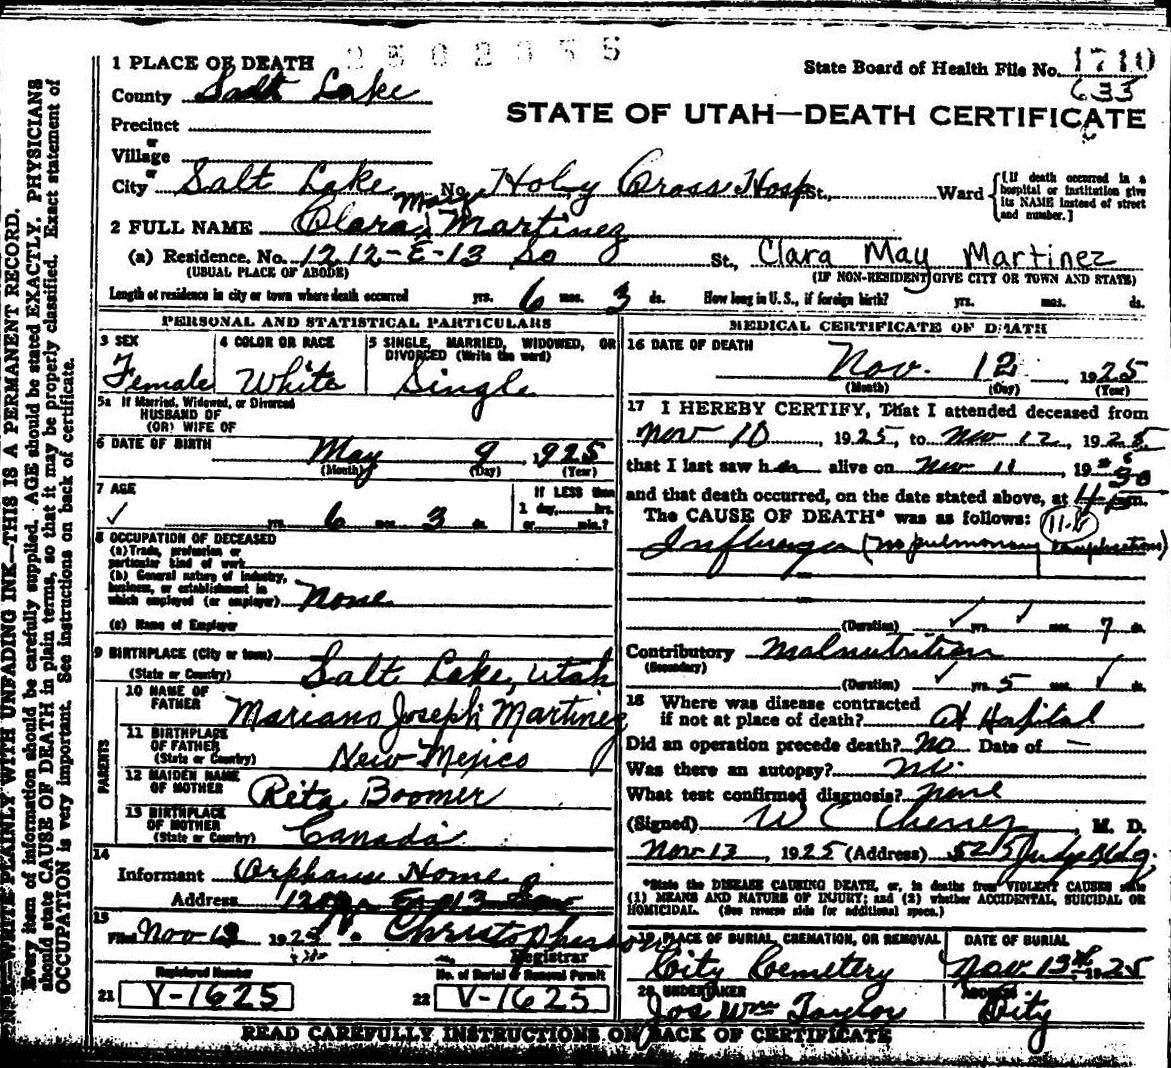 2502355
1 PLACE OF DEATH
State Board of Health File No. 1710
County Salt Lake
633
STATE OF UTAH—DEATH CERTIFICATE
Precinct
or
Village
or
City Salt Lake No. Holy Cross Hosp St., Ward
[If death occurred in a hospital or institution give its NAME instead of street and number.]
May
2 FULL NAME Clara Martinez
(a) Residence. No. 1212-E-13 So St., Clara May Martinez
(USUAL PLACE OF ABODE) (IF NON-RESIDENT GIVE CITY OR TOWN AND STATE)
Length of residence in city or town where death occurred yrs. 6 mos. 3 ds. How long in U. S., if foreign birth? yrs. mos. ds.
PERSONAL AND STATISTICAL PARTICULARS
3 SEX
Female
4 COLOR OR RACE
White
5 SINGLE, MARRIED, WIDOWED, OR
DIVORCED (Write the word)
Single
5a If Married, Widowed, or Divorced
HUSBAND OF
(OR) WIFE OF
6 DATE OF BIRTH May 9, 1925
(Month) (Day) (Year)
7 AGE
If LESS than
yrs. 6 mos. 3 ds. 1 day, hrs.
or min.?
8 OCCUPATION OF DECEASED
(a) Trade, profession or
particular kind of work
(b) General nature of industry,
business, or establishment in
which employed (or employer) None
(c) Name of Employer
9 BIRTHPLACE (City or town)
(State or Country) Salt Lake, Utah
PARENTS
10 NAME OF
FATHER Mariano Joseph Martinez
11 BIRTHPLACE
OF FATHER
(State or Country) New Mexico
12 MAIDEN NAME
OF MOTHER Rita Boomer
13 BIRTHPLACE
OF MOTHER
(State or Country) Canada
14
Informant Orphans Home
Address
15
Filed Nov 1925 Christopherson
Registrar
Registered Number
21 V-1625
No. of Burial or Removal Permit
22 V-1625
MEDICAL CERTIFICATE OF DEATH
16 DATE OF DEATH
Nov. 12, 1925
(Month) (Day) (Year)
17 I HEREBY CERTIFY, That I attended deceased from
Nov 10, 1925, to Nov 12, 1925
that I last saw h alive on Nov 11 19
and that death occurred, on the date stated above, at m.
The CAUSE OF DEATH* was as follows:
Influenza (no pulmonary complications)
(Duration) yrs. mos. 7 ds.
Contributory Malnutrition
(Secondary)
(Duration) yrs. 5 mos. ds.
18 Where was disease contracted
if not at place of death? At Hospital
Did an operation precede death? No Date of —
Was there an autopsy? No.
What test confirmed diagnosis? none
(Signed) W C Cherry, M. D.
Nov 13, 1925 (Address) 525 Judge Bldg.
*State the DISEASE CAUSING DEATH, or, in deaths from VIOLENT CAUSES state
(1) MEANS AND NATURE OF INJURY; and (2) whether ACCIDENTAL, SUICIDAL OR
HOMICIDAL. (See reverse side for additional space.)
19 PLACE OF BURIAL, CREMATION, OR REMOVAL
City Cemetery
DATE OF BURIAL
Nov. 13th 1925
20 UNDERTAKER
Jos Wm Taylor
ADDRESS
City
READ CAREFULLY INSTRUCTIONS ON BACK OF CERTIFICATE
WRITE PLAINLY WITH UNFADING INK—THIS IS A PERMANENT RECORD.
Every item of information should be carefully supplied. AGE should be stated EXACTLY. PHYSICIANS
should state CAUSE OF DEATH in plain terms, so that it may be properly classified. Exact statement of
OCCUPATION is very important. See instructions on back of certificate.